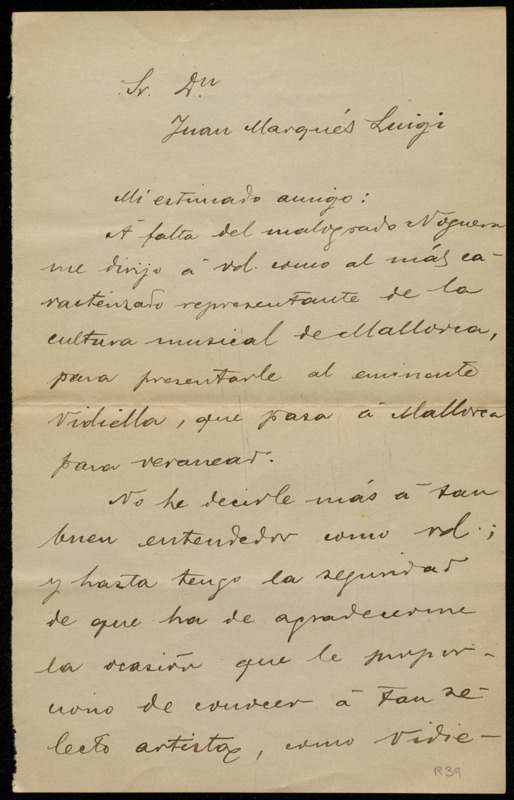 Sr. Dn
Juan Marqués Luigi
Mi estimado amigo:
A falta del malogrado Noguera
me dirijo á vd. como al más ca-
racterizado representante de la
cultura musical de Mallorca,
para presentarle al eminente
Vidiella, que pasa á Mallorca
para veranear.
No he decirle más á tan
buen entendedor como vd.;
y hasta tengo la seguridad
de que ha de agradecerme
la ocasión que le propor-
ciono de conocer á tan se-
lecto artista, como Vidie-
R39